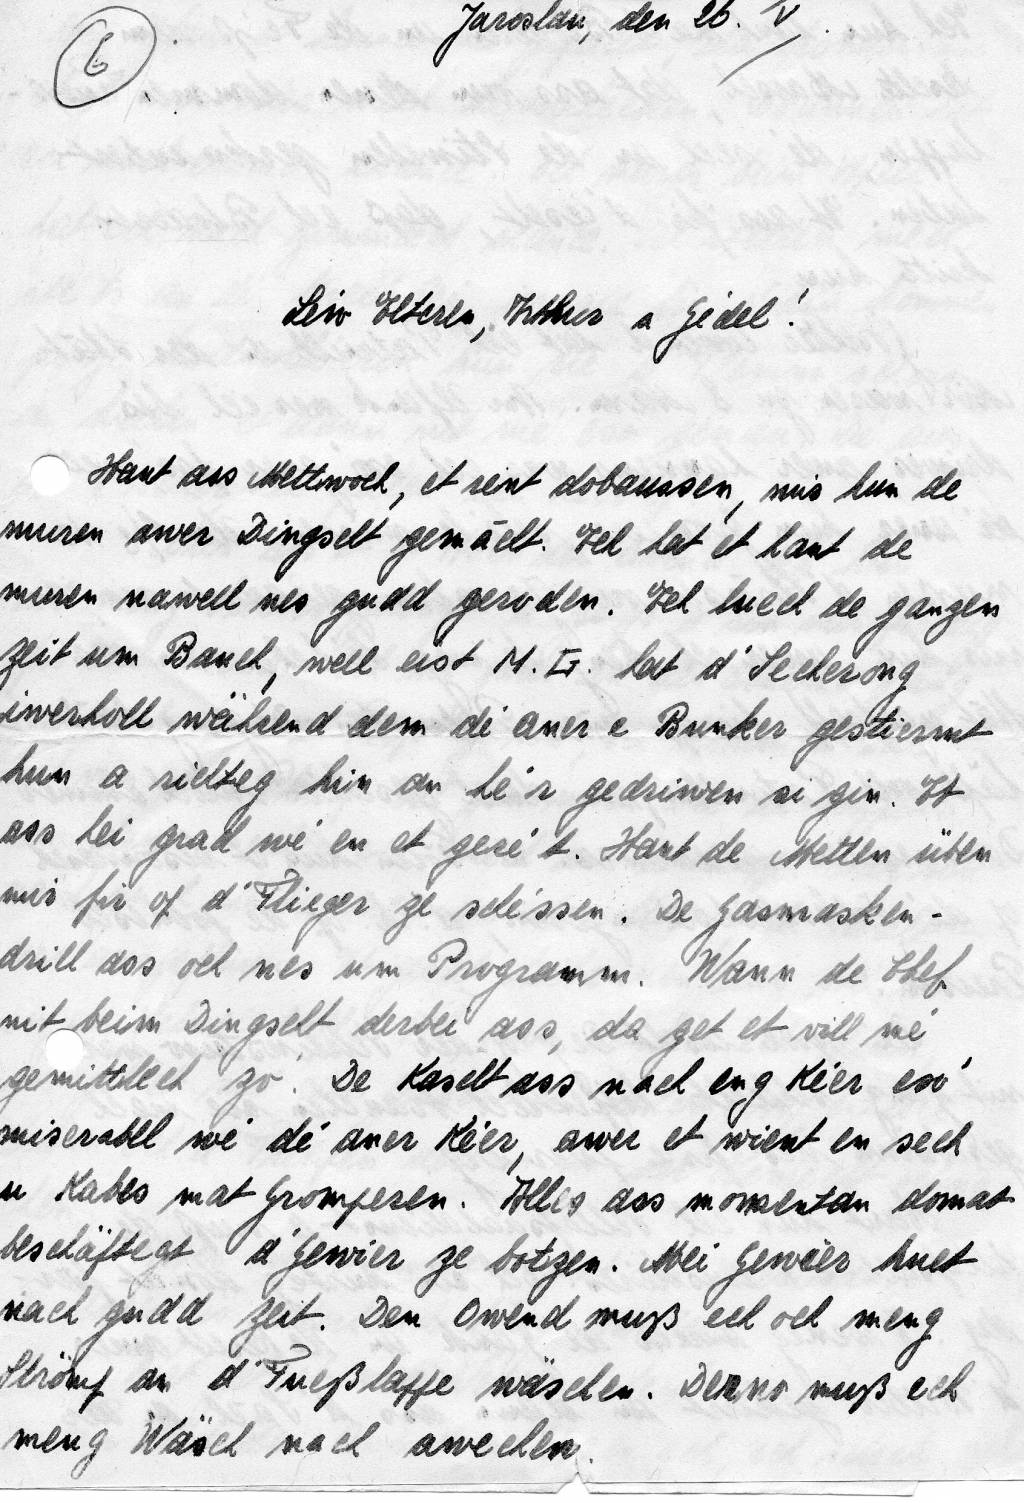 6
Jaroslau, den 26. V.
Léiw Elteren, Arthur a Gédel!
Haut ass Mettwoch, et rent dobaussen, mir hun de
muren awer Dingscht gemäelt. Ech hat et haut de
muren nawell nes gudd geroden. Ech luech de ganzen
zeit um Bauch, well eist M.G. hat d'Secherong
iwerholl während dem dé aner e Bunker gestiermt
hun a richteg hin an hé'r gedriwen si gin. Et
ass hei grad wé en et geséi't. Haut de Metten üben
mir fir of d'Flieger ze schéssen. De Gasmasken-
drill ass och nes um Programm. Wann de Chef
nit beim Dingscht derbei ass, da get et vill mé
gemittlech zo'. De Kascht ass nach eng Kéer eso'
miserabel wé dé aner Kéer, awer et wient en sech
u Kabes mat Gromperen. Alles ass momentan domat
beschäftegt d'Gewier ze botzen. Mei Gewéer huet
nach gudd Zeit. Den Owend muß ech och meng
Strömp an d'Fueßlappe wäschen. Derno muß ech
meng Wäsch nach awechen.